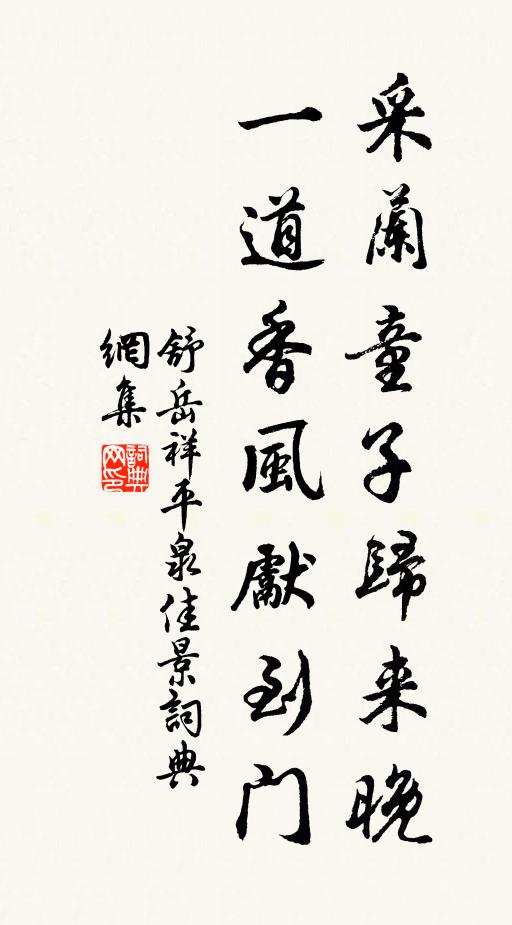 采蘭童子歸来晚
一道香風獻到門
舒岳祥平泉佳景詞典
網集
詞典
网印